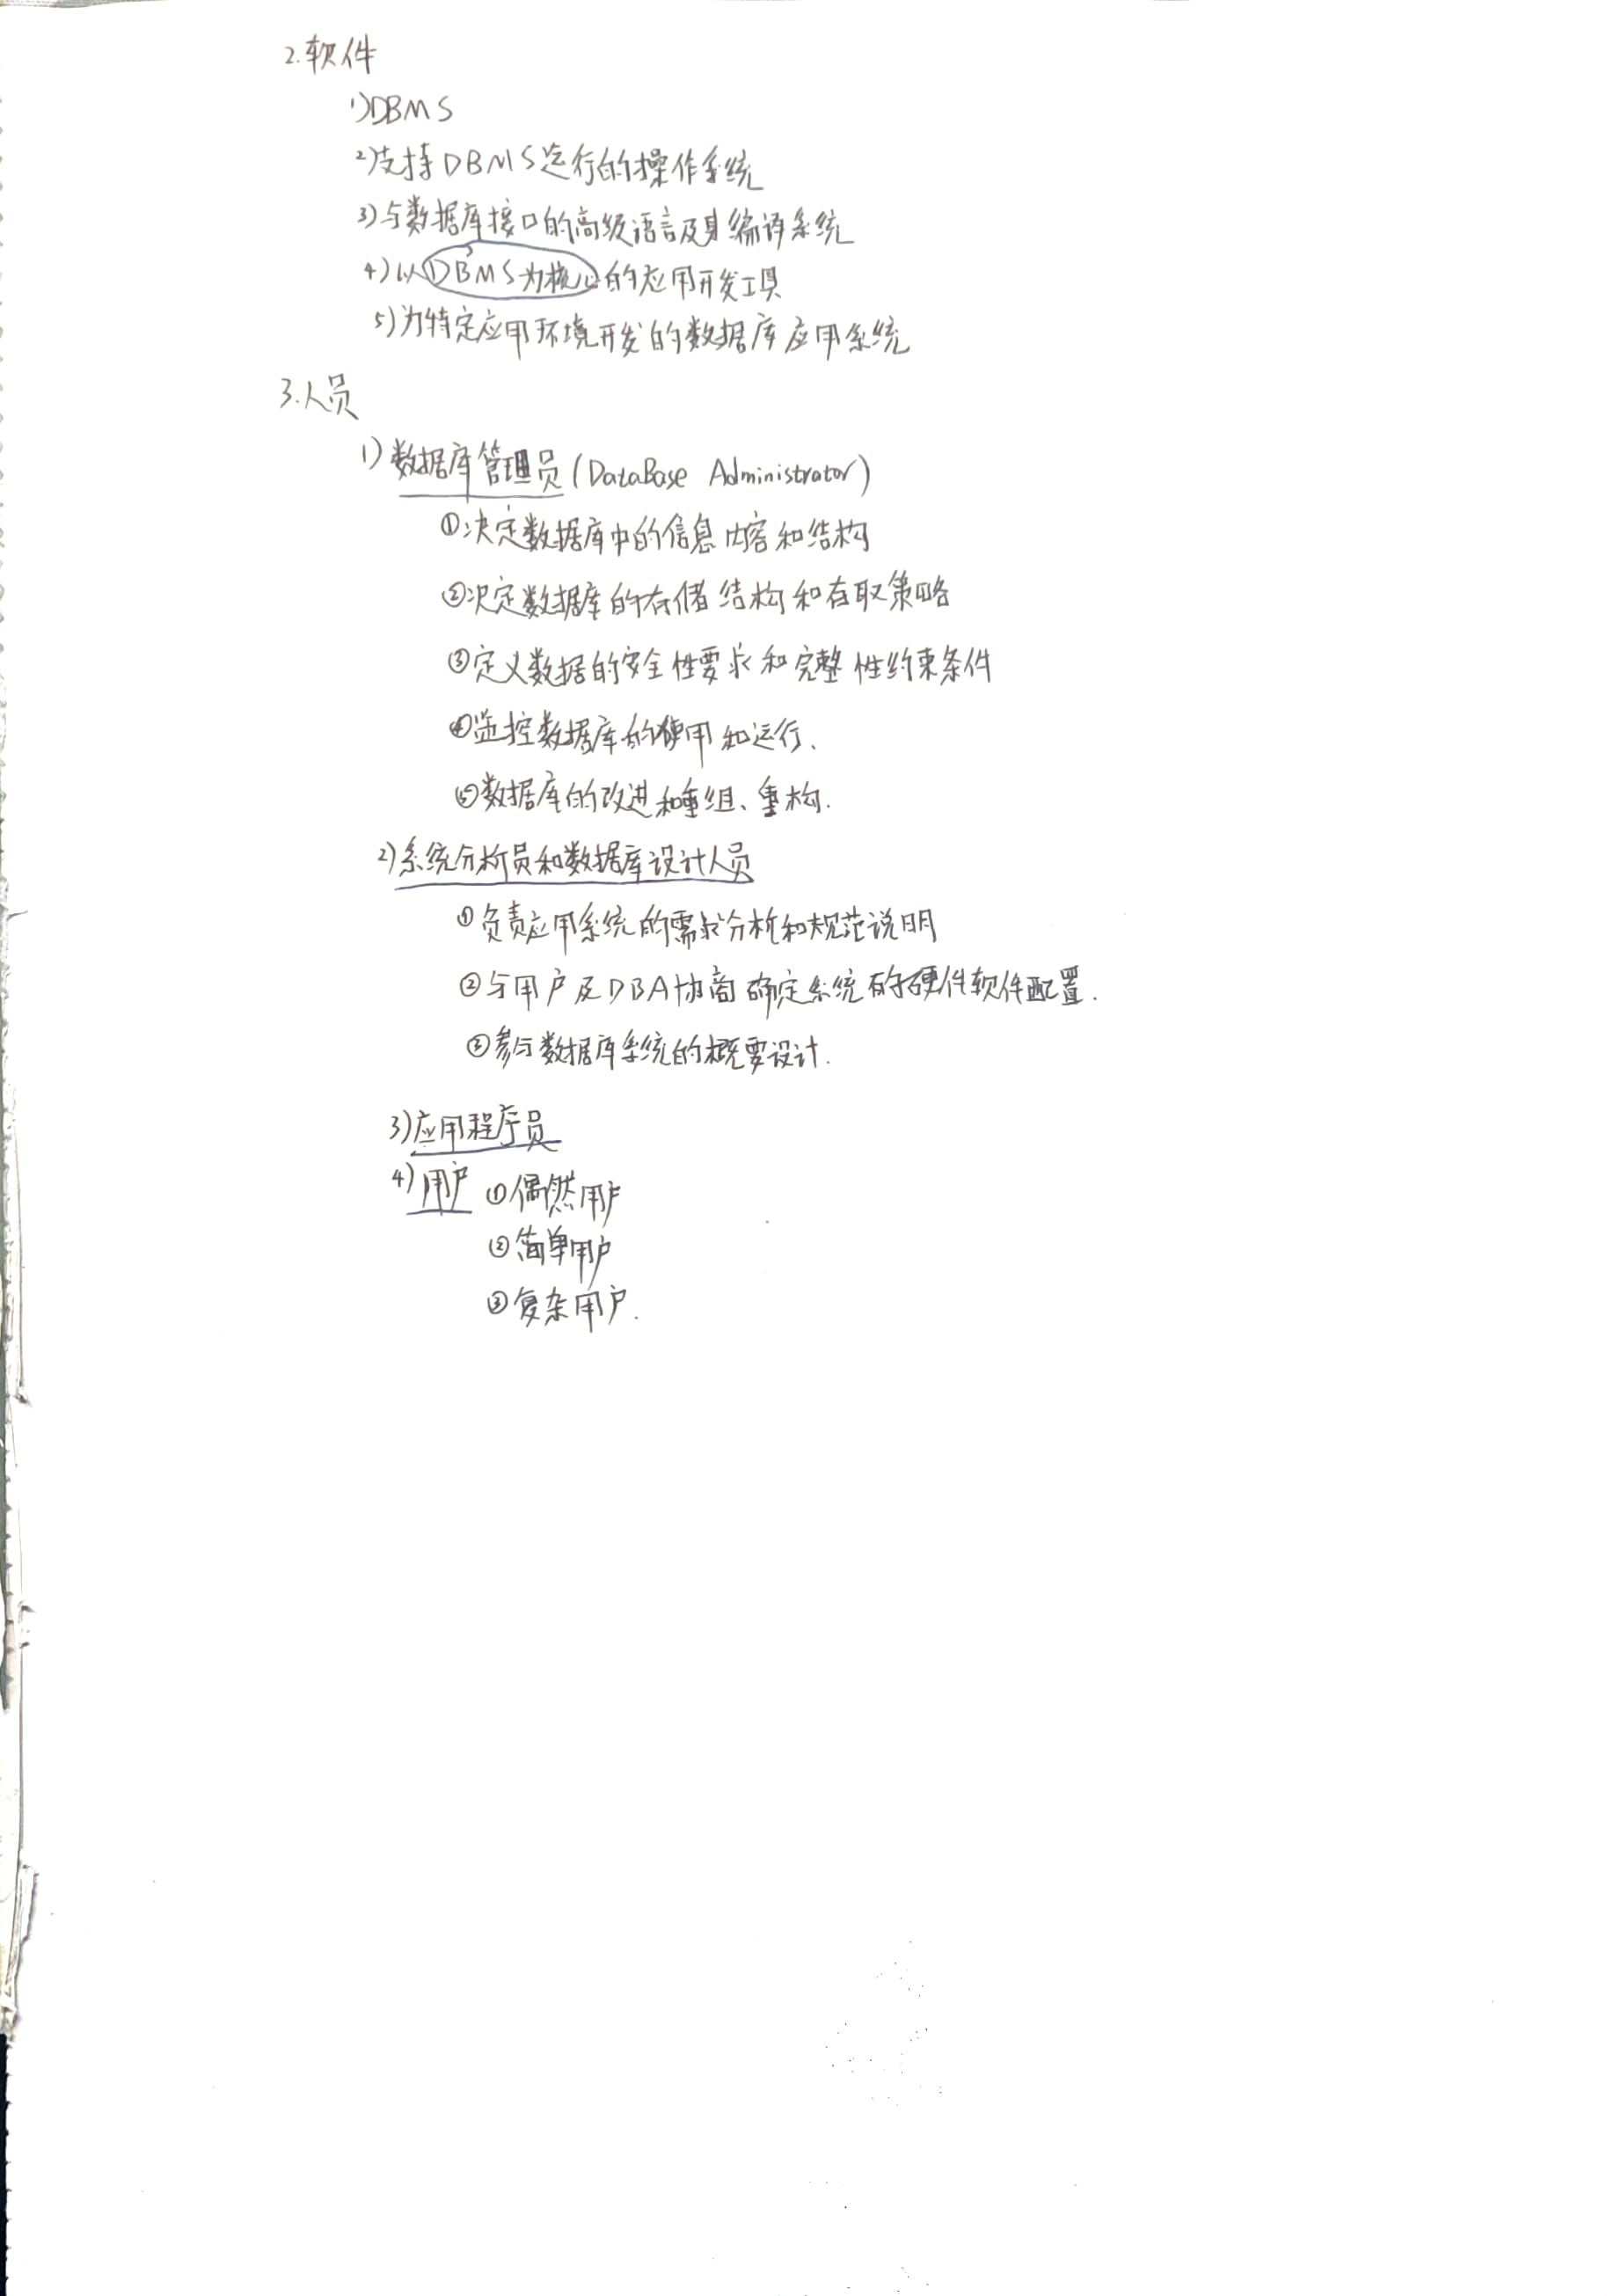 2.软件
1)DBMS
2)支持DBMS运行的操作系统
3)与数据库接口的高级语言及其编译系统
4)以DBMS为核心的应用开发工具
5)为特定应用环境开发的数据库应用系统
3.人员
1)数据库管理员(DataBase Administrator)
①决定数据库中的信息内容和结构
②决定数据库的存储结构和存取策略
③定义数据的安全性要求和完整性约束条件
④监控数据库的使用和运行、
⑤数据库的改进和重组、重构.
2)系统分析员和数据库设计人员
①负责应用系统的需求分析和规范说明
②与用户及DBA协商确定系统的硬件软件配置.
③参与数据库系统的概要设计.
3)应用程序员
4)用户 ①偶然用户
②简单用户
③复杂用户.